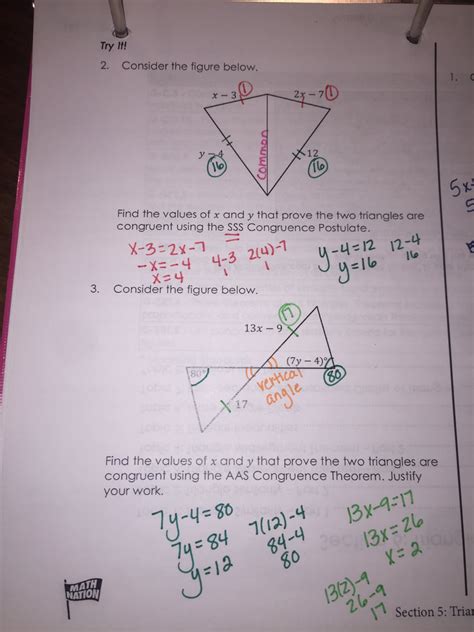 Try It!
2. Consider the figure below.
x − 3
1
2x − 7
1
y − 4
16
common
12
16
Find the values of x and y that prove the two triangles are
congruent using the SSS Congruence Postulate.
x-3=2x-7
-x=-4
x=4
4-3
1
2(4)-7
1
y-4=12
y=16
12-4
16
3. Consider the figure below.
17
13x − 9
(7y − 4)°
80
80°
vertical
angle
17
Find the values of x and y that prove the two triangles are
congruent using the AAS Congruence Theorem. Justify
your work.
7y-4=80
7y=84
y=12
7(12)-4
84-4
80
13x-9=17
13x=26
x=2
13(2)-9
26-9
17
MATH
NATION
Section 5: Trian
1.
5x
5